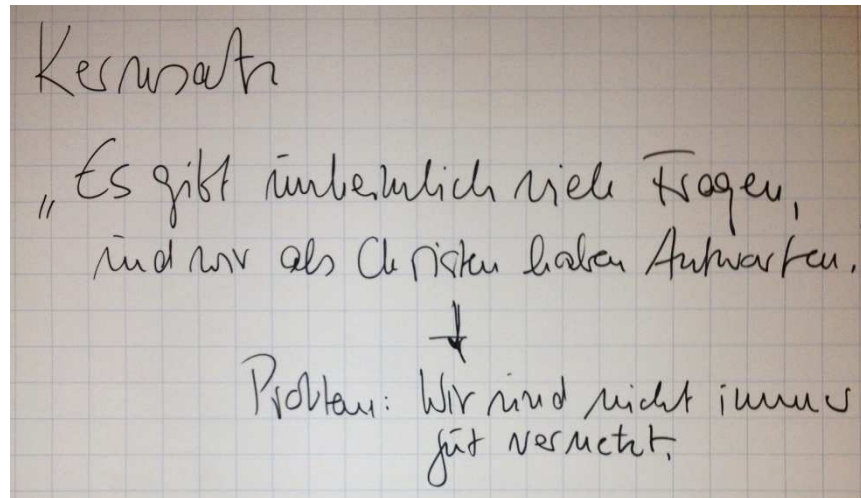 Kernsatz
„Es gibt unheimlich viele Fragen,
und wir als Christen haben Antworten.
↓
Problem: Wir sind nicht immer
gut vernetzt.